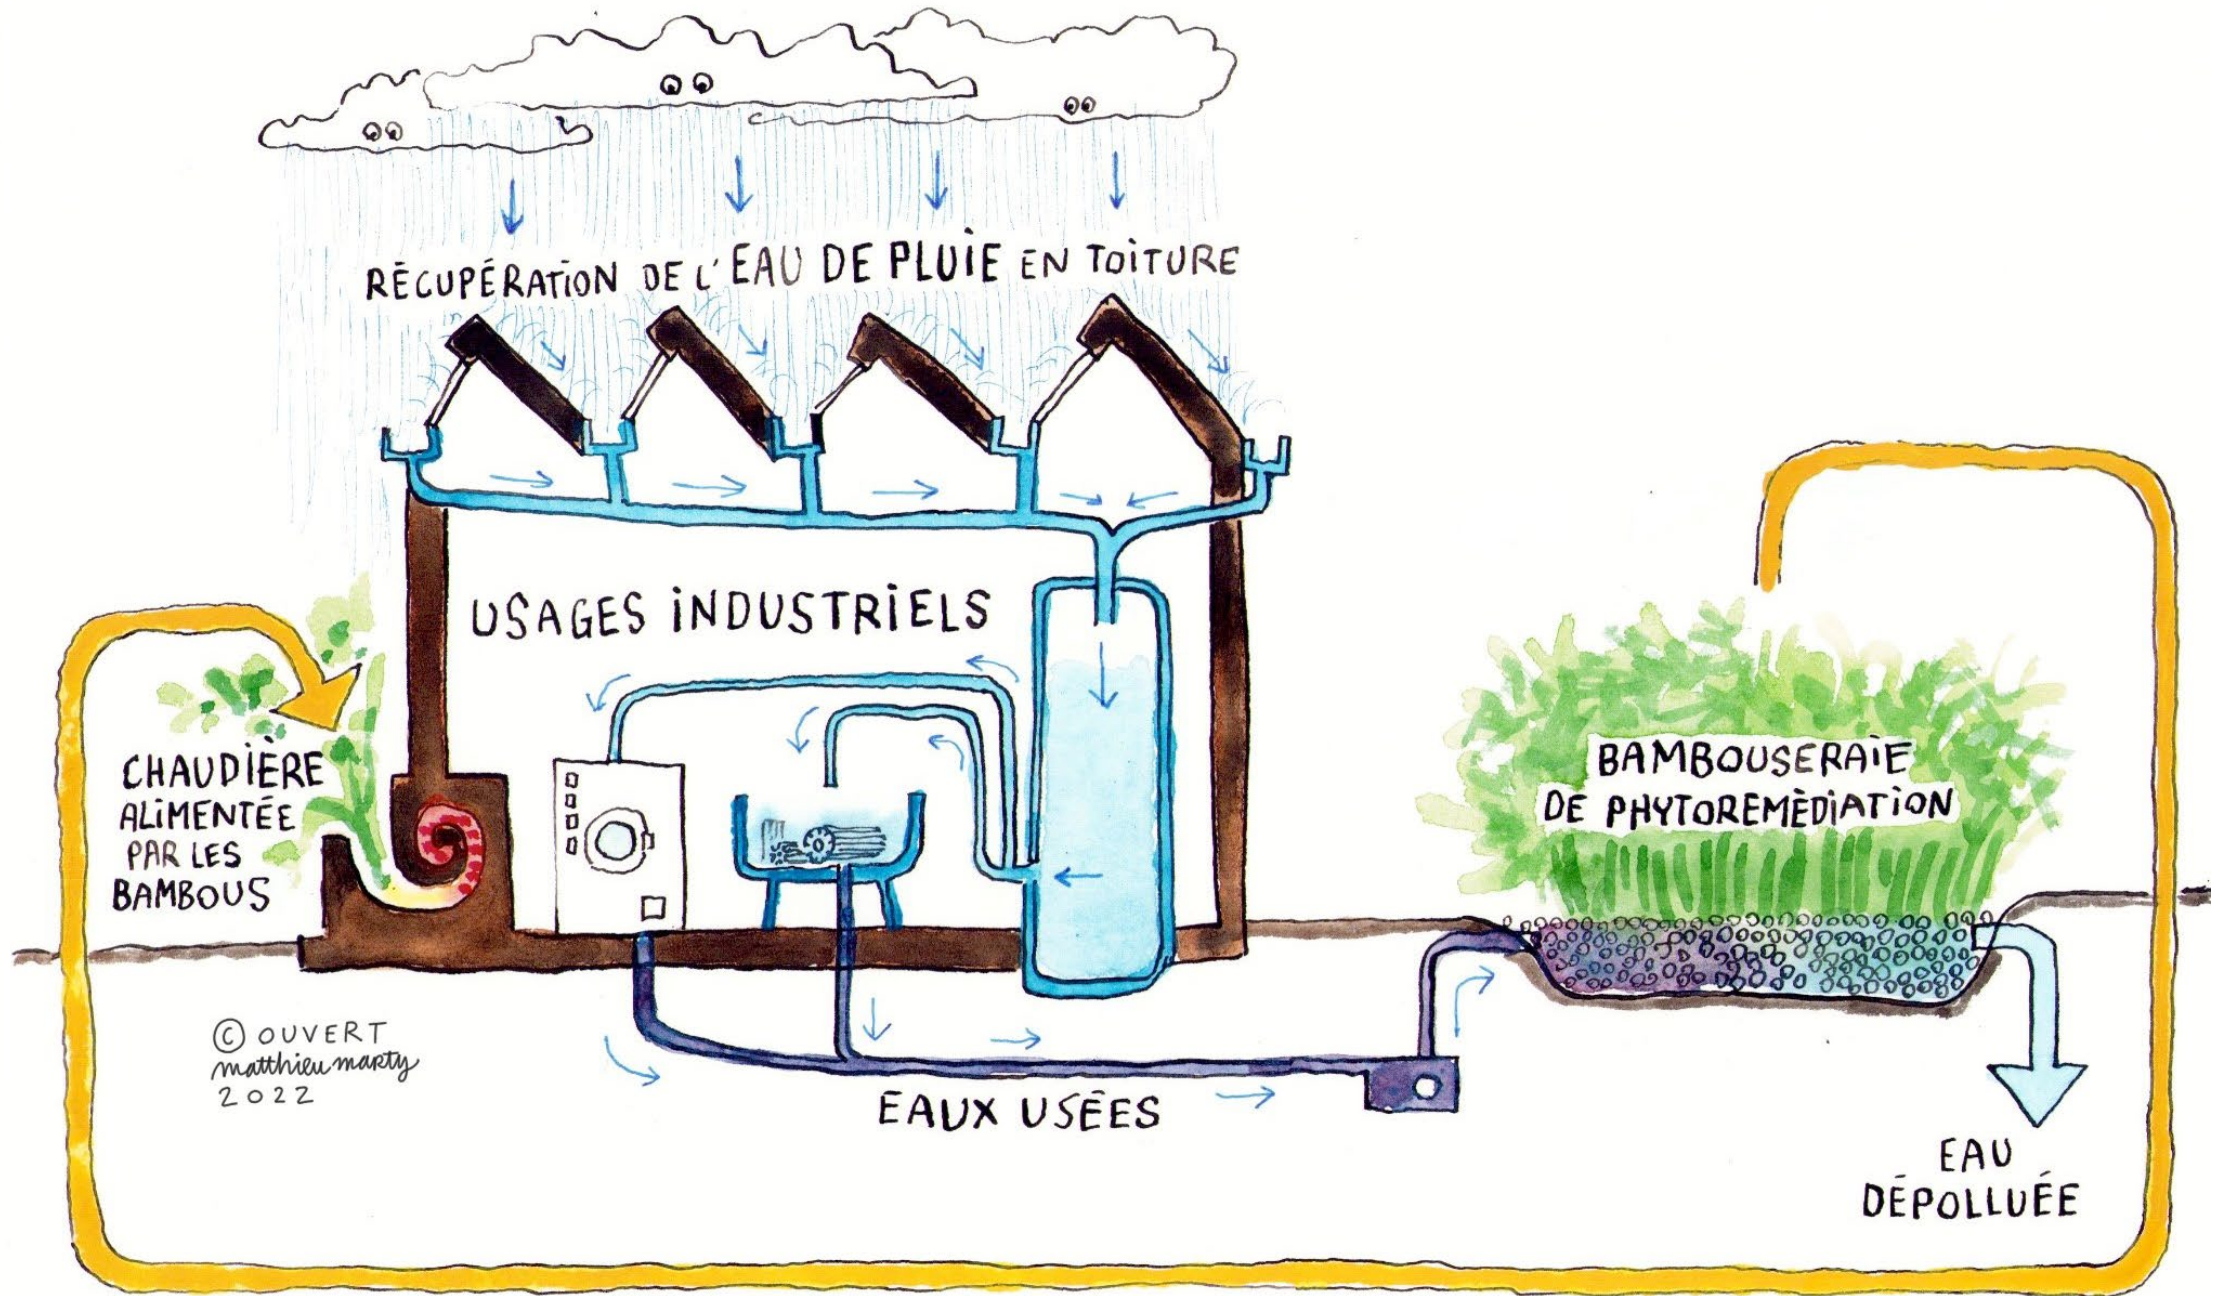 RÉCUPÉRATION DE L'EAU DE PLUIE EN TOITURE
USAGES INDUSTRIELS
CHAUDIÈRE
ALIMENTÉE
PAR LES
BAMBOUS
BAMBOUSERAIE
DE PHYTOREMÉDIATION
© OUVERT
matthieu marty
2022
EAUX USÉES
EAU
DÉPOLLUÉE